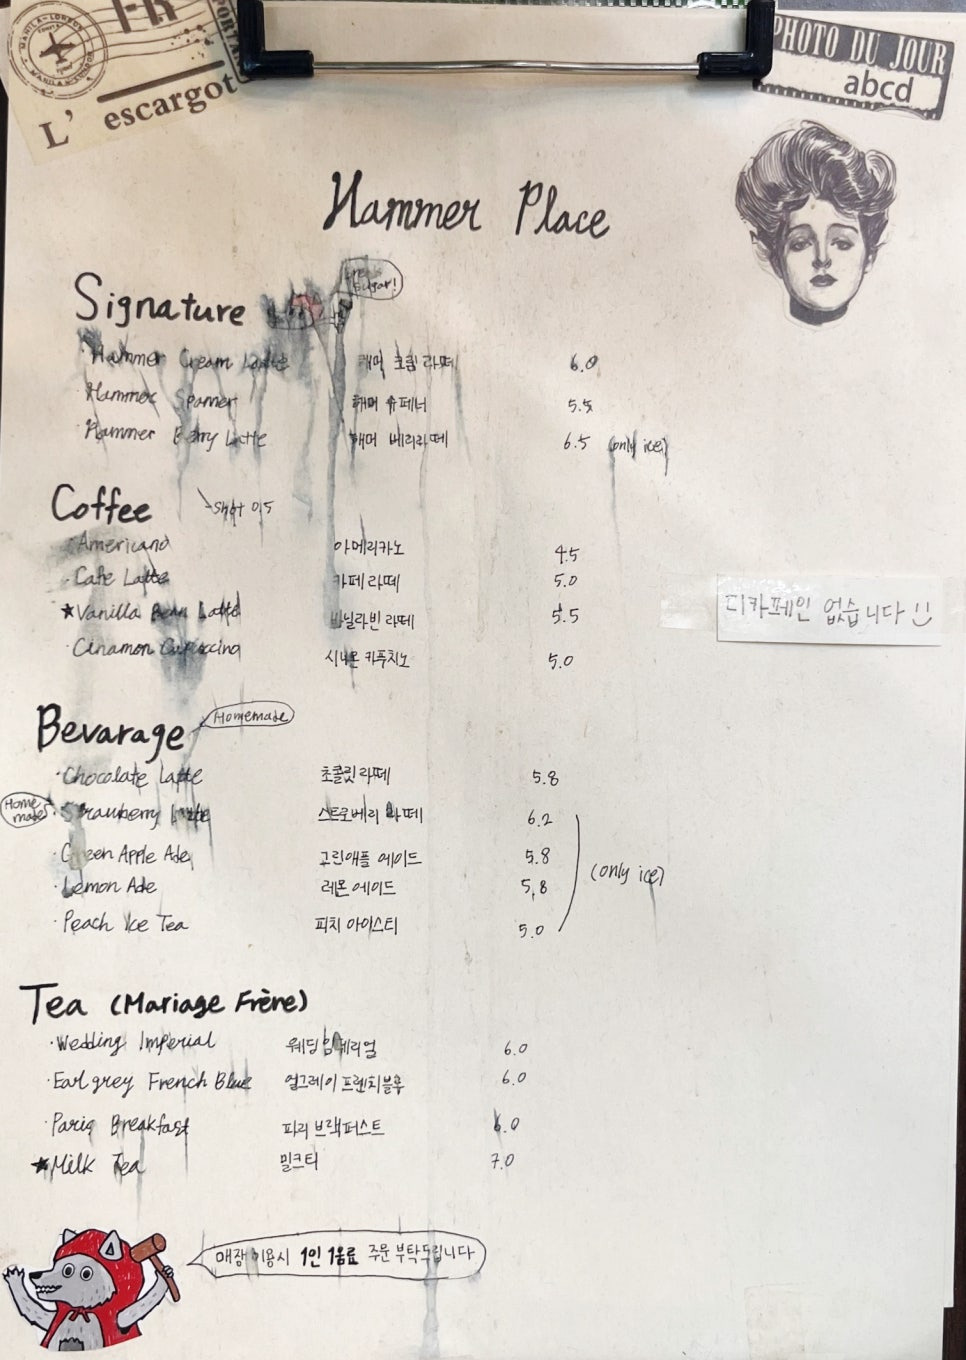 FR
MANILA-LONDON
L' escargot
PHOTO DU JOUR
abcd
Hammer Place
Signature
Sugar!
Hammer Cream Latte 해머 크림 라떼 6.0
Hammer 해머 5.5
Hammer Berry Latte 해머 베리라떼 6.5 (only ice)
Coffee -shot 0.5
· Americano 아메리카노 4.5
· Cafe Latte 카페 라떼 5.0
★ Vanilla Bean Latte 바닐라빈 라떼 5.5
· Cinamon Cupuccino 시나몬 카푸치노 5.0
디카페인 없습니다
Bevarage Homemade
· Chocolate Latte 초콜릿 라떼 5.8
Home made · Strawberry Latte 스트로베리 라떼 6.2
· Green Apple Ade 그린애플 에이드 5.8
(only ice)
· Lemon Ade 레몬 에이드 5.8
· Peach Ice Tea 피치 아이스티 5.0
Tea (Mariage Frène)
· Wedding Imperial 웨딩 임페리얼 6.0
· Earl grey French Blue 얼그레이 프렌치블루 6.0
· Paris Breakfast 파리 브랙퍼스트 6.0
★ Milk Tea 밀크티 7.0
매장 이용시 1인 1음료 주문 부탁드립니다